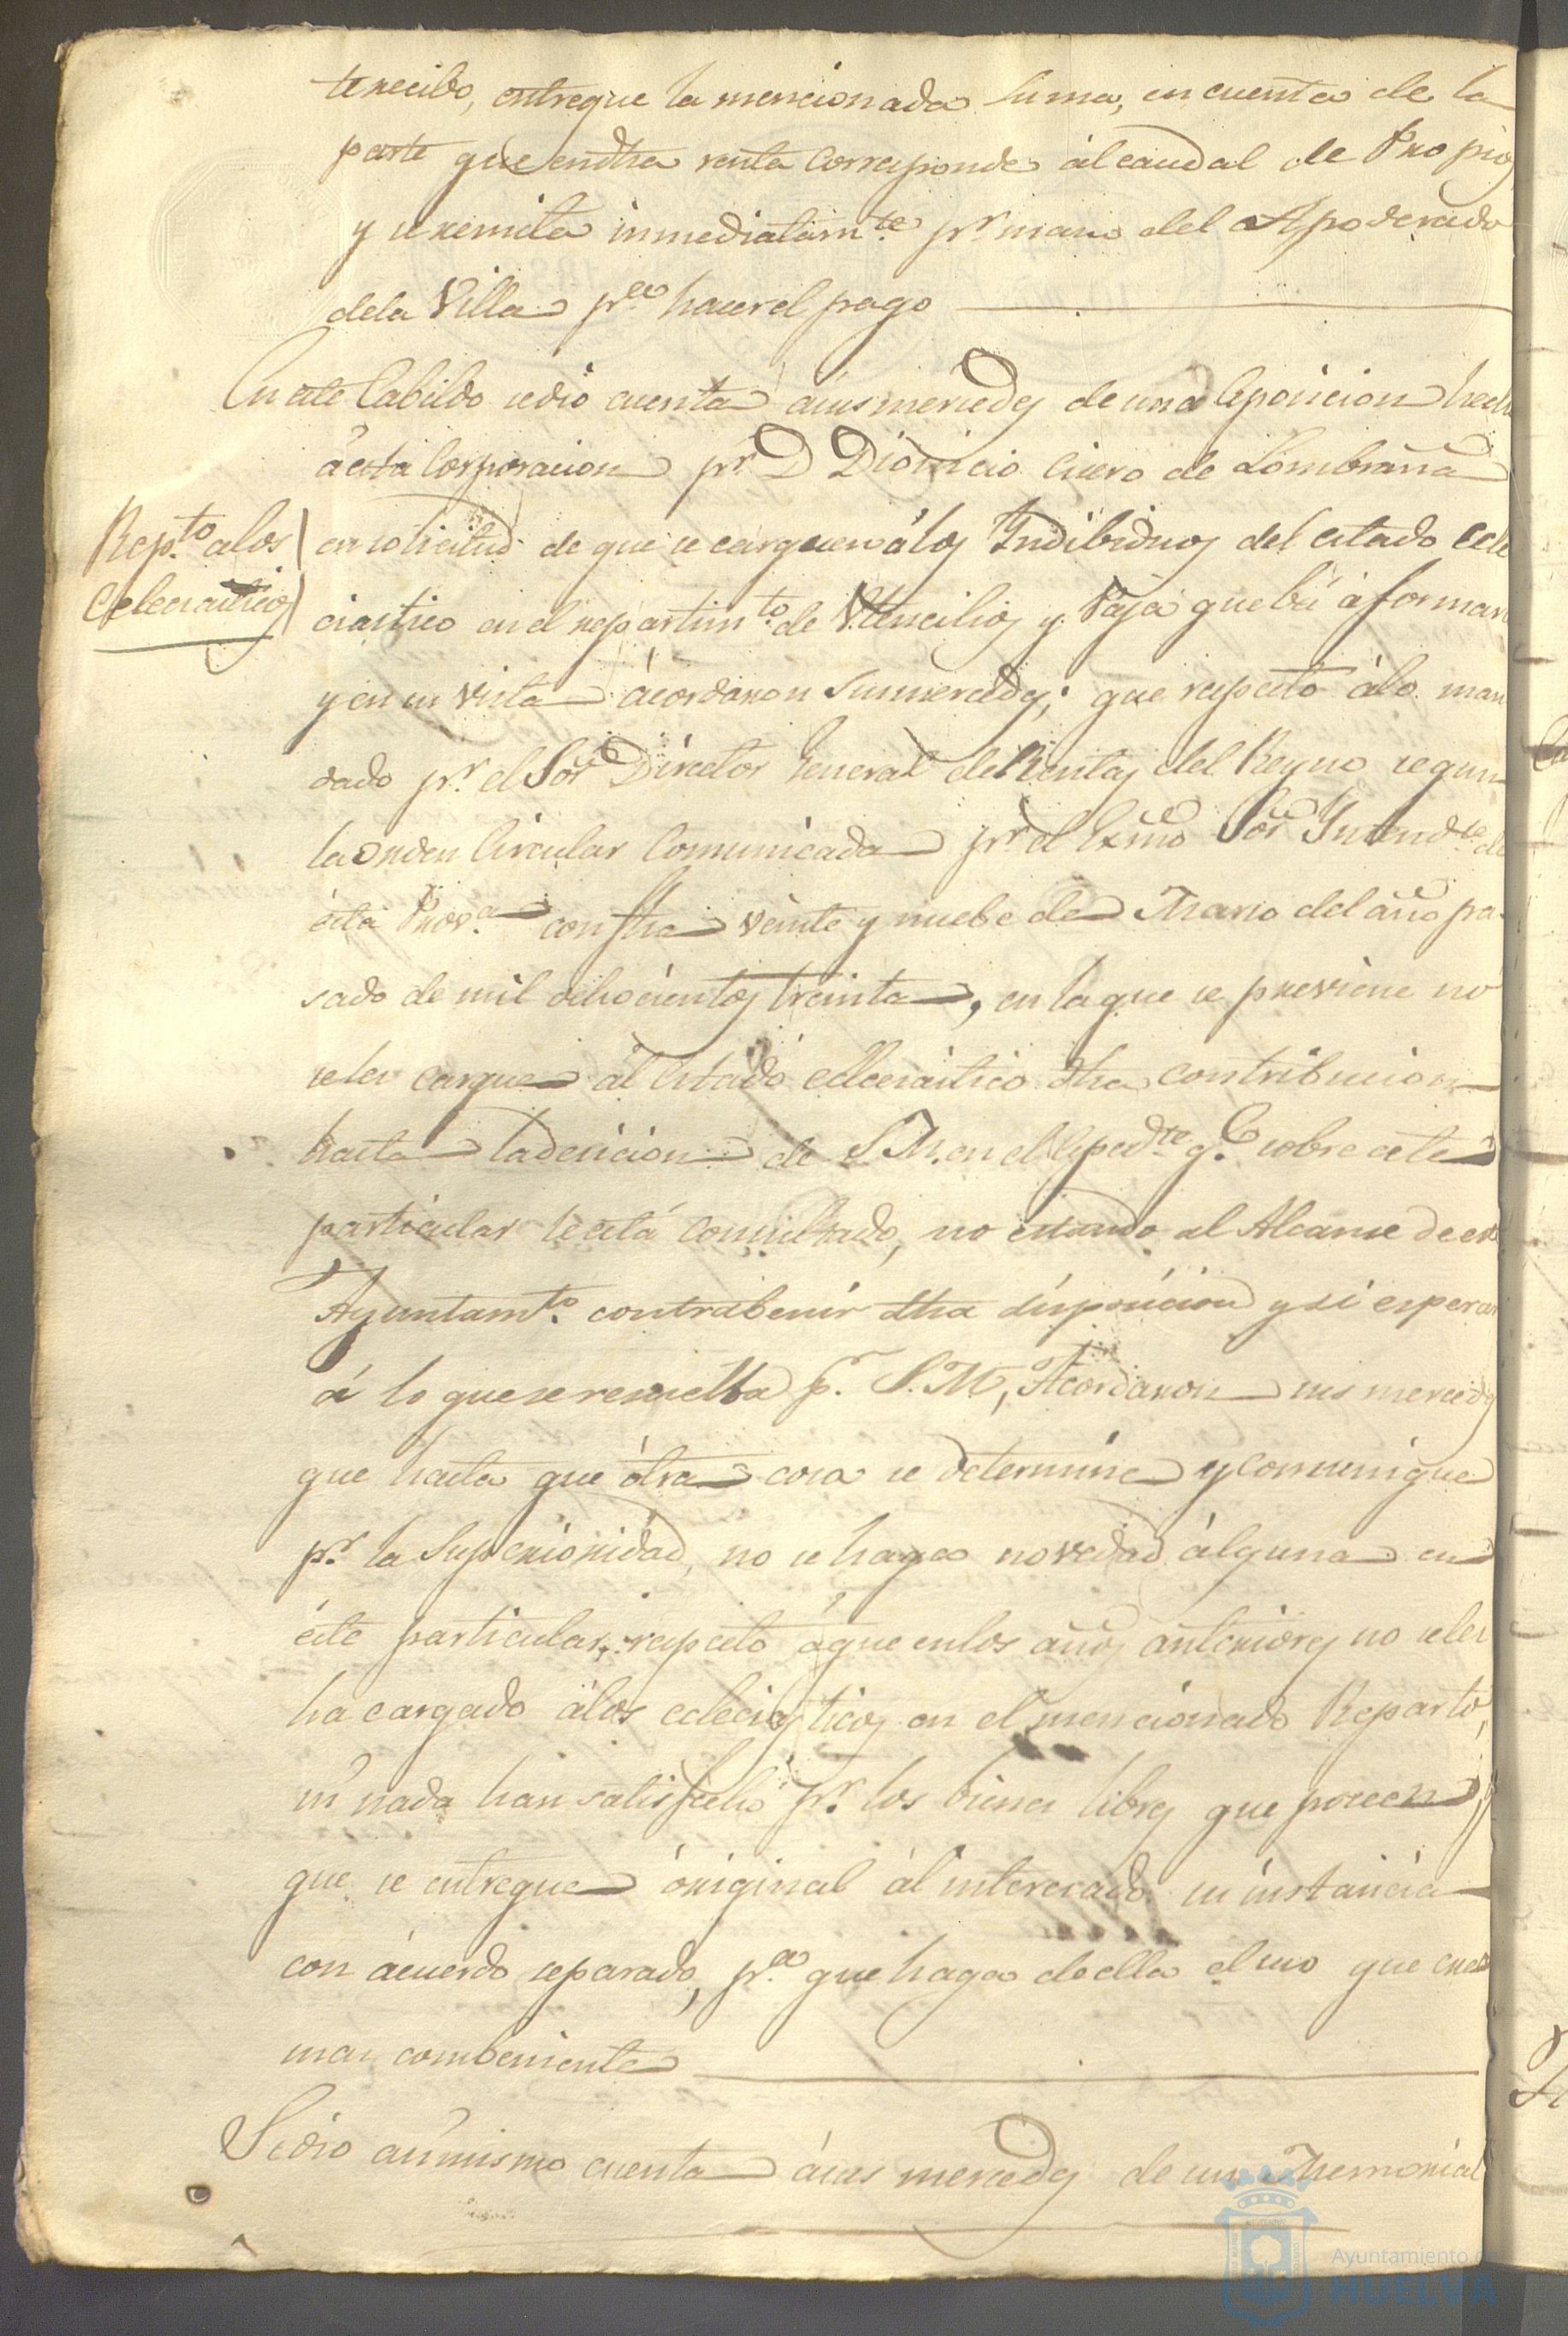 te recibo, entregue la mencionada suma, en cuenta de la
parte que en dha renta corresponde al caudal de Propios
y se remita inmediatamte pr mano del Apoderado
de la Villa pra hacer el pago
En este Cabildo se dio cuenta á sus mercedes de una esposicion hecha
á esta Corporacion pr D Dionicio Cicero de Lombraña
Rep.to a los
Eclesiasticos
en solicitud de que se carguen á los Indibiduos del estado ecle
ciastico en el repartimto de Utencilios y Paja que bá á formarse
y en su vista acordaron sus mercedes; que respecto á lo man
dado pr. el Sor Director General de Rentas del Reyno segun
la orden Circular Comunicada pr el Exmo Sor Intendte de
esta Prov.a con fha veinte y nuebe de Marzo del año pa-
sado de mil ochocientos treinta, en la que se previene no
se les cargue al estado eclesiastico dha contribucion
hasta la desicion de S. M. en el Espedte q.e sobre este
particular le está consultado, no estando al Alcanse de este
Ayuntam.to contrabenir dha disposicion y si esperar
á lo que se resuelba pr. S. M, Acordaron sus mercedes
que hasta que otra cosa se determine y comunique
pr. la Superioridad, no se haga novedad alguna en
este particular, respecto á que en los años anteriores no se les
ha cargado á los eclesiasticos en el mencionado Reparto,
ni nada han satisfecho pr. los bienes libres que poseen, y
que se entregue original al interesado su instancia
con acuerdo separado, pr.a que haga de ella el uso que crea
mas combeniente
Se dio asimismo cuenta á sus mercedes de un Memorial
Ayuntamiento
HUELVA